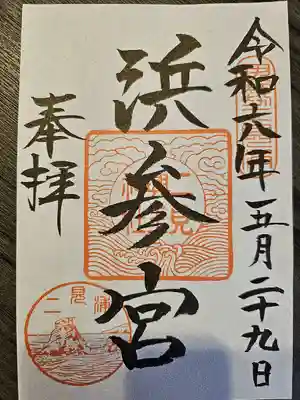 令和六年五月二十九日
浜参宮
奉拝
二見
二見浦